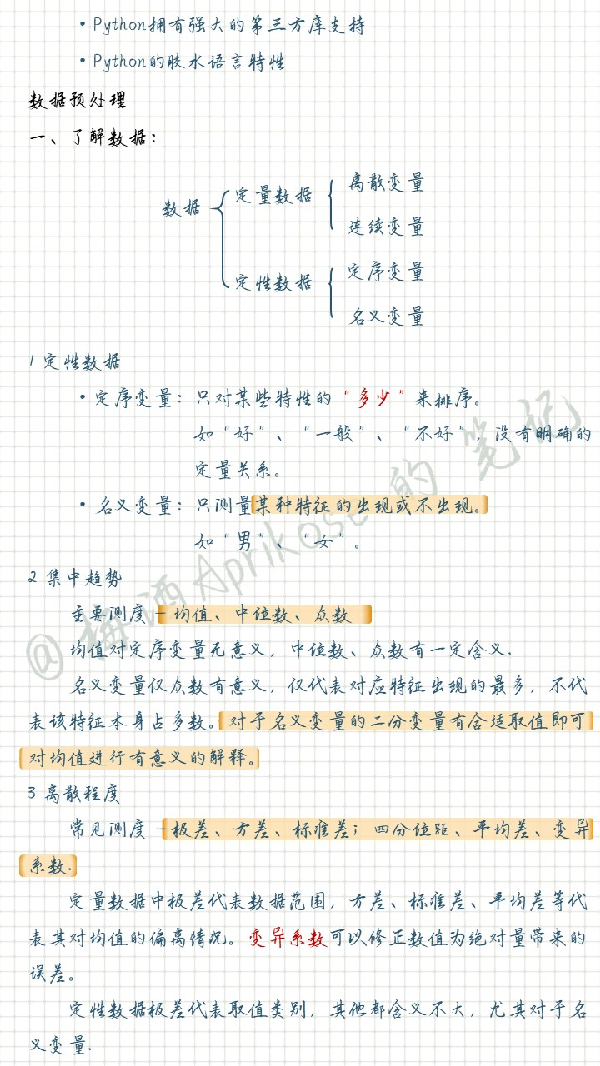 • Python拥有强大的第三方库支持
• Python的胶水语言特性
数据预处理
一、了解数据：
离散变量
定量数据
数据
连续变量
定序变量
定性数据
名义变量
1 定性数据
• 定序变量：只对某些特性的“多少”来排序。
如“好”、“一般”、“不好”，没有明确的
定量关系。
• 名义变量：只测量某种特征的出现或不出现。
如“男”、“女”。
2 集中趋势
主要测度 - 均值、中位数、众数
均值对定序变量无意义，中位数、众数有一定含义.
名义变量仅众数有意义，仅代表对应特征出现的最多，不代
表该特征本身占多数。对于名义变量的二分变量有合适取值即可
对均值进行有意义的解释。
3 离散程度
常见测度 - 极差、方差、标准差；四分位距、平均差、变异
系数.
定量数据中极差代表数据范围，方差、标准差、平均差等代
表其对均值的偏离情况。变异系数可以修正数值为绝对量带来的
误差。
定性数据极差代表取值类别，其他都含义不大，尤其对于名
义变量.
@梅酒Aprikose的笔记